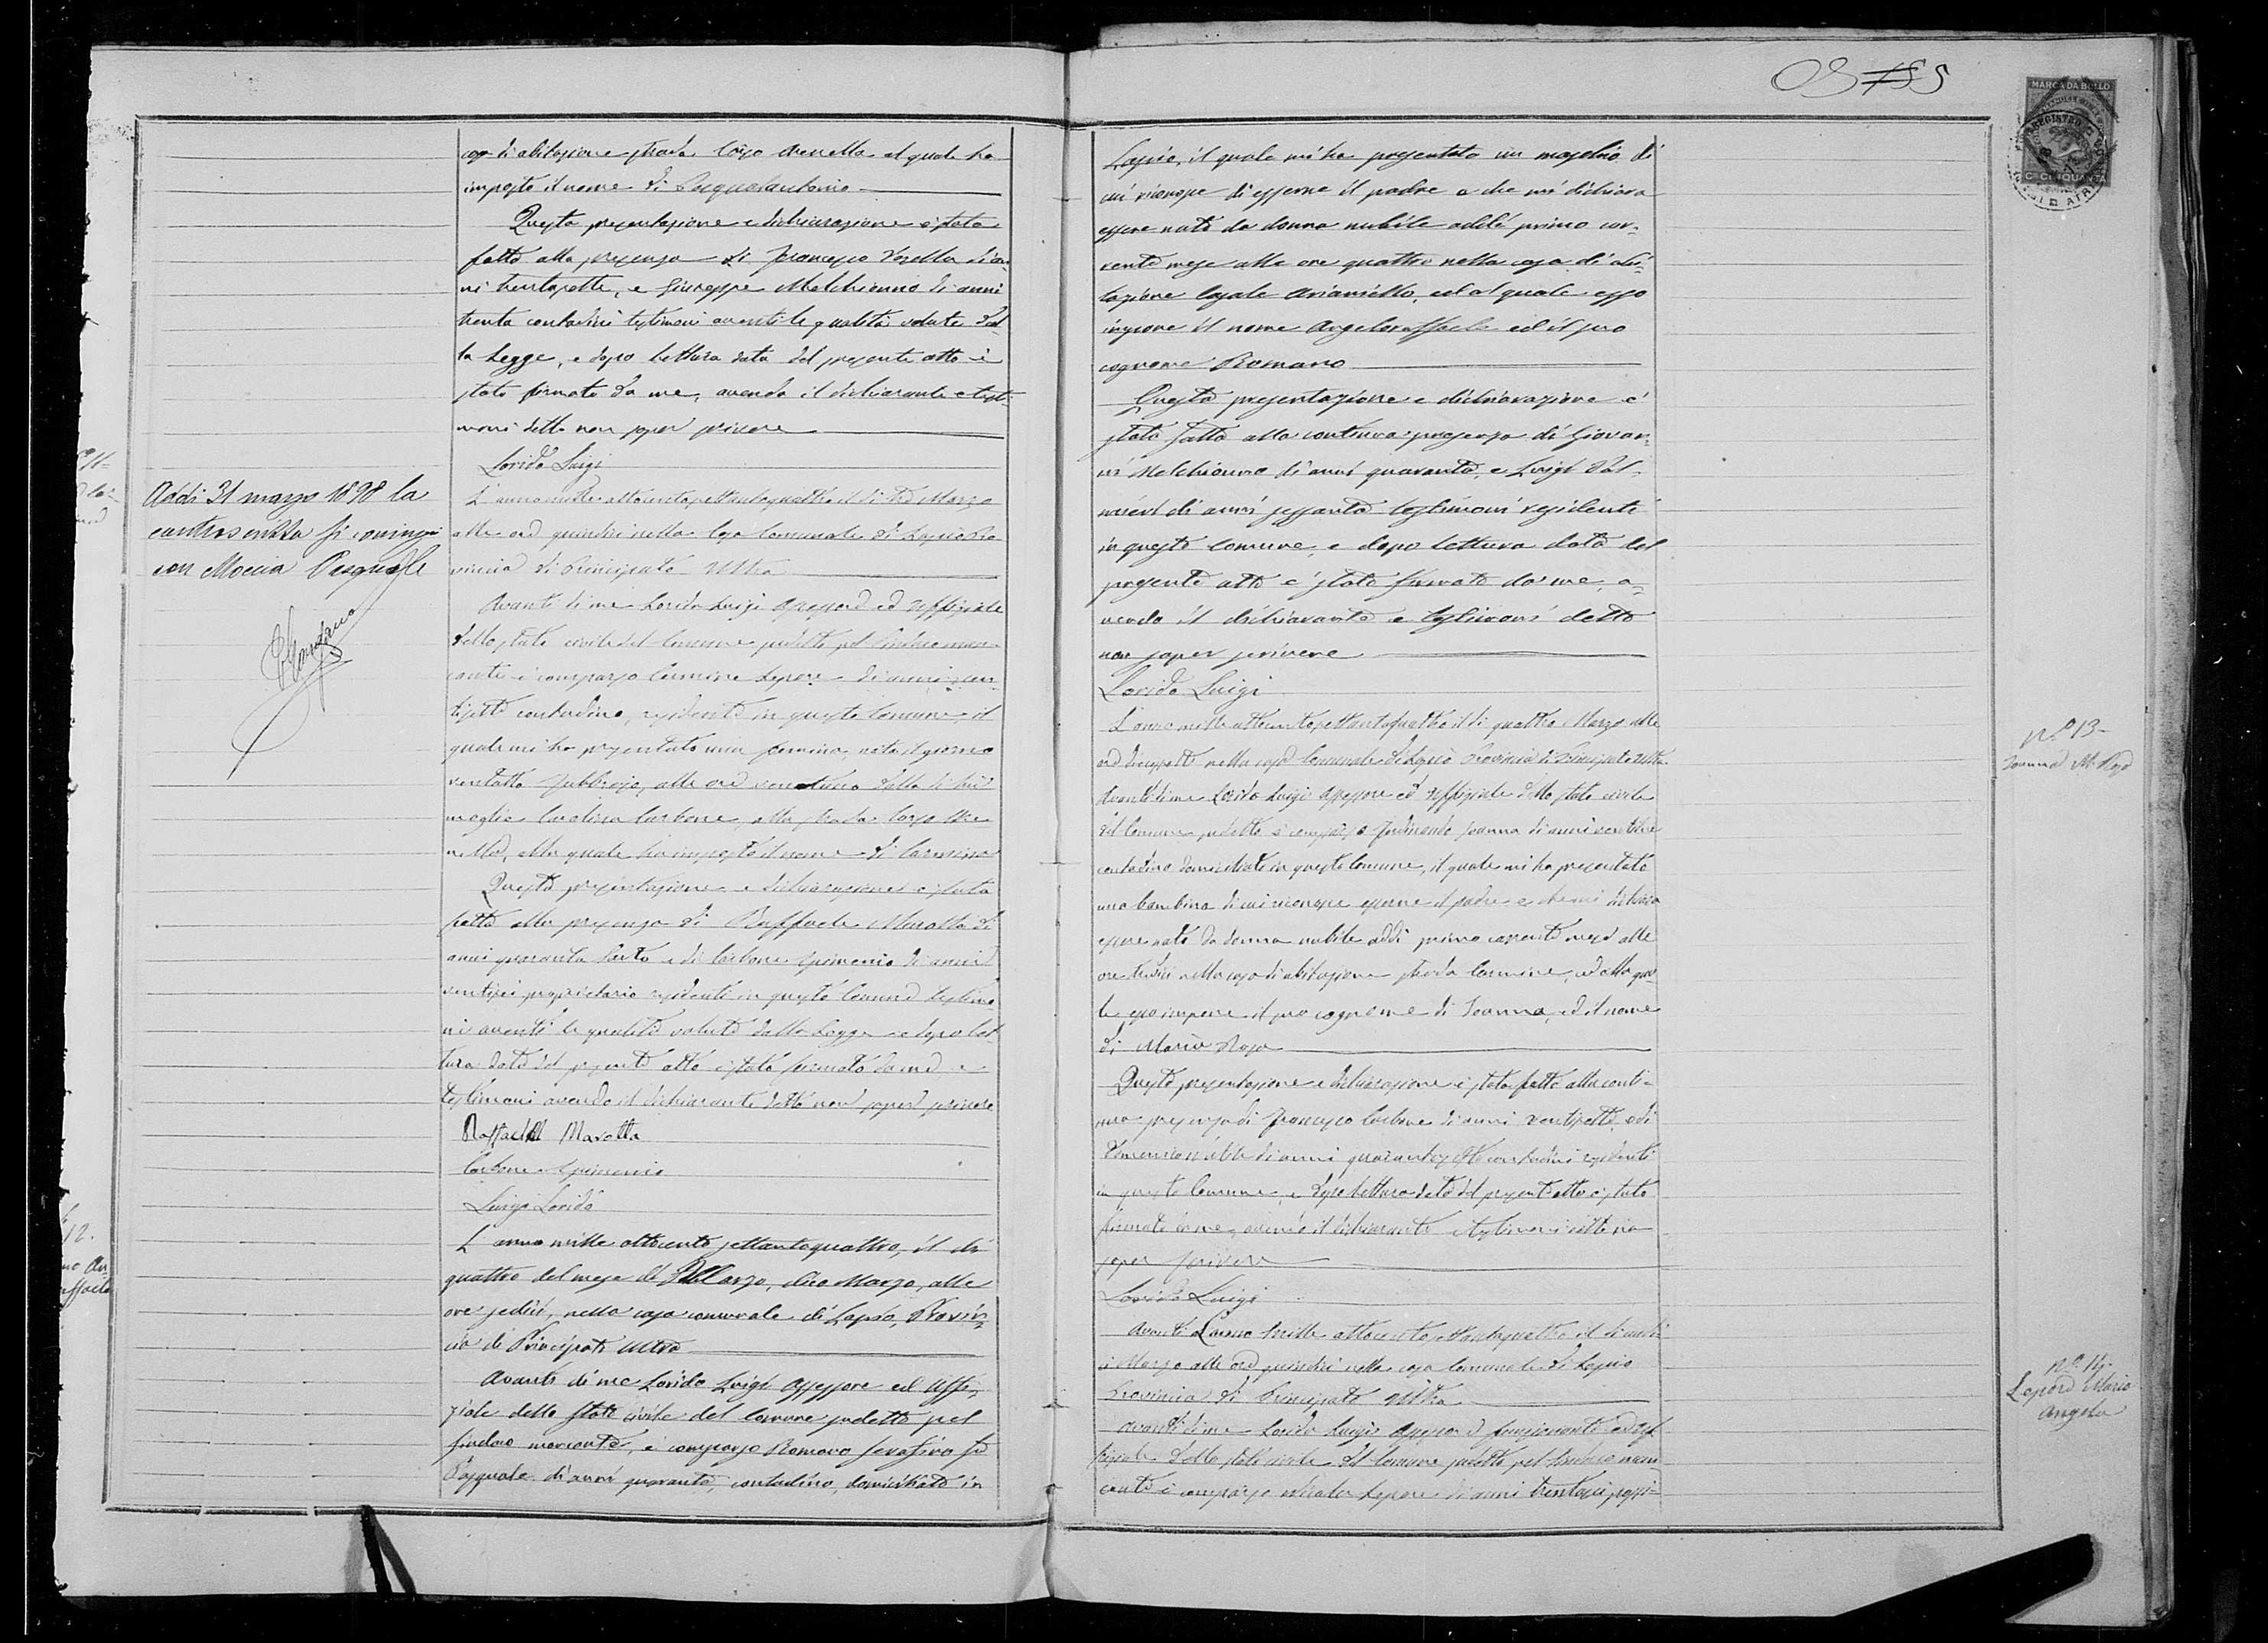 MARCA DA BOLLO
REGISTRO
CINQUANTA
di abitazione strada largo Arenella al quale ha
imposto il nome di Pasqualantonio
Questa presentazione e dichiarazione è stata
fatta alla presenza di Francesco di an-
ni trentasette, e Giuseppe Melchionno di anni
trenta contadini testimoni aventi le qualità volute dal
la Legge, e dopo lettura data del presente atto è
stato firmato da me, avendo il dichiarante e testi-
moni detto non saper scrivere
Lorido Luigi
Addì 31 marzo 1898 la
controscritta si coniugò
con Moccia Pasquale
L'anno mille ottocento settantaquattro il dì tre Marzo
alle ore quindici nella Casa Comunale di Lapio Pro
vincia di Principato Ultra
Avanti di me Lorido Luigi Assessore ed Uffiziale
dello stato civile del Comune suddetto pel Sindaco man-
cante è comparso Carmine Lepore di anni ven-
tisette contadino, residente in questo Comune, il
quale mi ha presentato una femina, nata il giorno
ventotto Febbraio, alle ore ventuno dalla di lui
moglie Carolina Carbone, alla strada largo Are
nella, alla quale ha imposto il nome di Carmina
Questa presentazione e dichiarazione è stata
fatta alla presenza di Raffaele Marotta di
anni quaranta Sarto e di Carbone Epimenio di anni
ventisei proprietario residenti in questo Comune testimo
ni aventi le qualità volute dalla Legge e dopo let
tura data del presente atto è stato firmato da me e
testimoni avendo il dichiarante detto non saper scrivere
Raffaele Marotta
Carbone Epimenio
Luigi Lorido
12.
L'anno mille ottocento settantaquattro, il dì
quattro del mese di Marzo, dico Marzo, alle
ore sedici, nella casa comunale di Lapio, Provin
cia di Principato Ultra
Avanti di me Lorido Luigi Assessore ed Uffi-
ziale dello Stato civile del Comune sudetto pel
sindaco mancante, è comparso Romano Serafino fu
Pasquale di anni quaranta, contadino, domiciliato in
Lapio, il quale mi ha presentato un maschio di
cui riconosce di esserne il padre e che mi dichiara
essere nato da donna nubile addì primo cor-
rente mese alle ore quattro nella casa di abi-
tazione locale Arianiello, ed al quale esso
impone il nome Angeloraffaele ed il suo
cognome Romano
Questa presentazione e dichiarazione è
stata fatta alla continua presenza di Giovan
ni Melchionno di anni quaranta, e Luigi
di anni sessanta testimoni residenti
in questo Comune, e dopo lettura data del
presente atto è stato firmato da me, a-
vendo il dichiarante e testimoni detto
non saper scrivere
Lorido Luigi
N.º 13-
Ioanna M.ª Rosa
L'anno mille ottocento settantaquattro il dì quattro Marzo alle
ore diciassette nella casa Comunale di Lapio Provincia di Principato Ultra
Avanti di me Lorido Luigi Assessore ed Uffiziale dello stato civile
del Comune sudetto è comparso Ferdinando Ioanna di anni
contadino domiciliato in questo Comune, il quale mi ha presentato
una bambina di cui riconosce esserne il padre e che mi dichiara
essere nata da donna nubile addì primo corrente mese alle
ore tredici nella casa di abitazione strada Carmine, ed alla qua-
le esso impone il suo cognome di Ioanna, ed il nome
di Maria Rosa
Questa presentazione e dichiarazione è stata fatta alla conti-
nua presenza di Francesco Carbone di anni ventisette, e di
di anni contadini residenti
in questo Comune, e dopo lettura data del presente atto è stato
firmato da me, avendo il dichiarante e testimoni detto non
saper scrivere
Lorido Luigi
N.º 14.
Lepore Maria
Angela
L'anno mille ottocento settantaquattro il dì
Marzo alle ore quindici nella casa Comunale di Lapio
Provincia di Principato Ultra
Avanti di me Lorido Luigi Assessore funzionante ed Uf
fiziale dello stato civile del Comune sudetto pel Sindaco man
cante è comparso Nicola Lepore di anni trentasei possi-